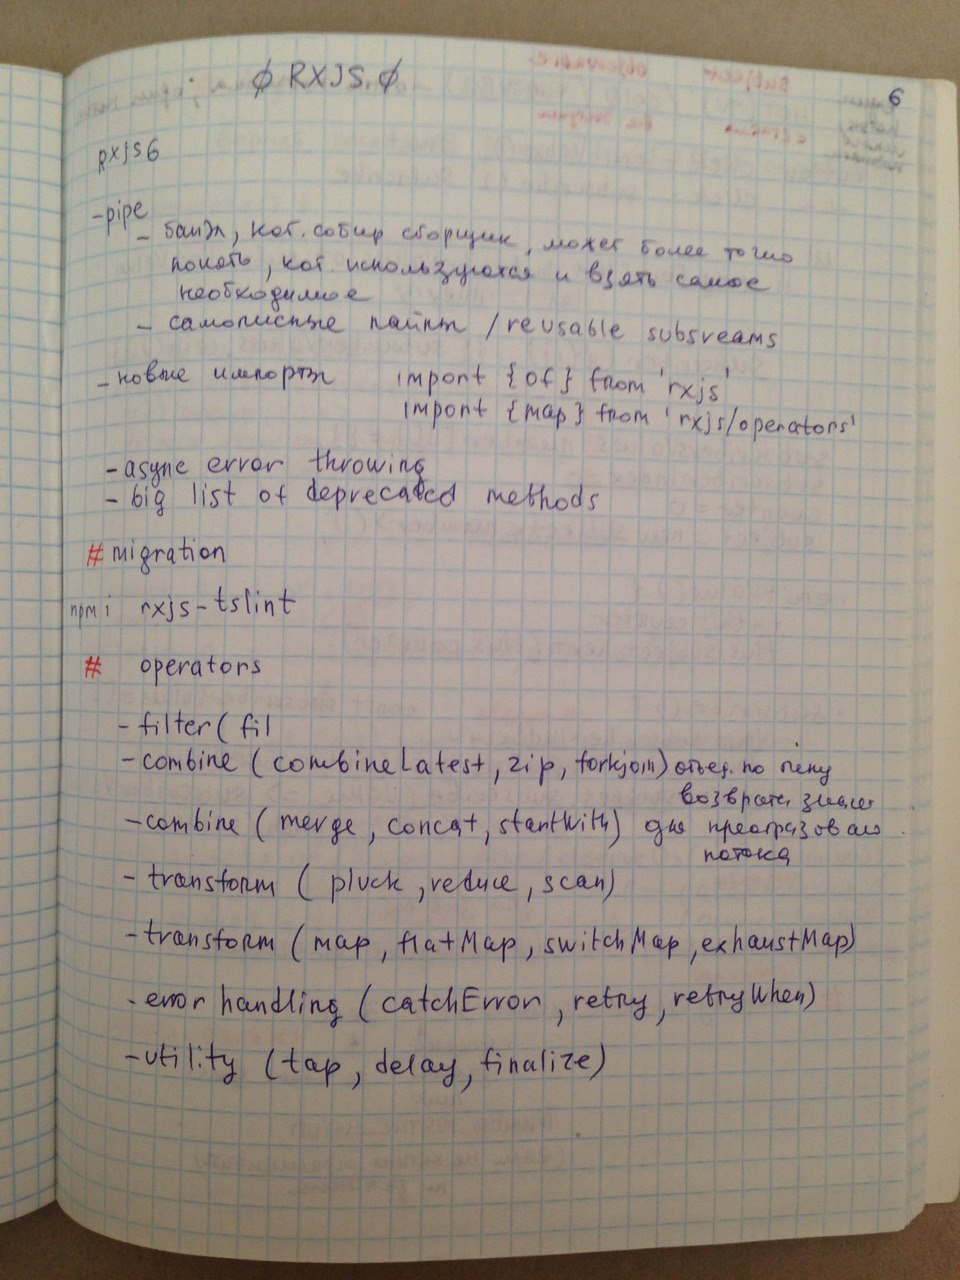 ∅ RXJS.∅
6
RXjS6
-pipe
- бандл, кот. собир сборщик, может более точно
понять, кот используются и взять самое
необходимое
- самописные пайпы /reusable subsreams
- новые импорты import {of} from 'rxjs'
import {map} from 'rxjs/operators'
- async error throwing
- big list of deprecated methods
# migration
npm i rxjs-tslint
# operators
- filter( fil
- combine (combineLatest, zip, forkjoin) отвеч. по
возврат. значе
- combine ( merge, concat, startWith) для преобразован
потока
- transform ( pluck, reduce, scan)
- transform (map, flatMap, switchMap, exhaustMap)
- error handling (catchError, retry, retryWhen)
- utility (tap, delay, finalize)